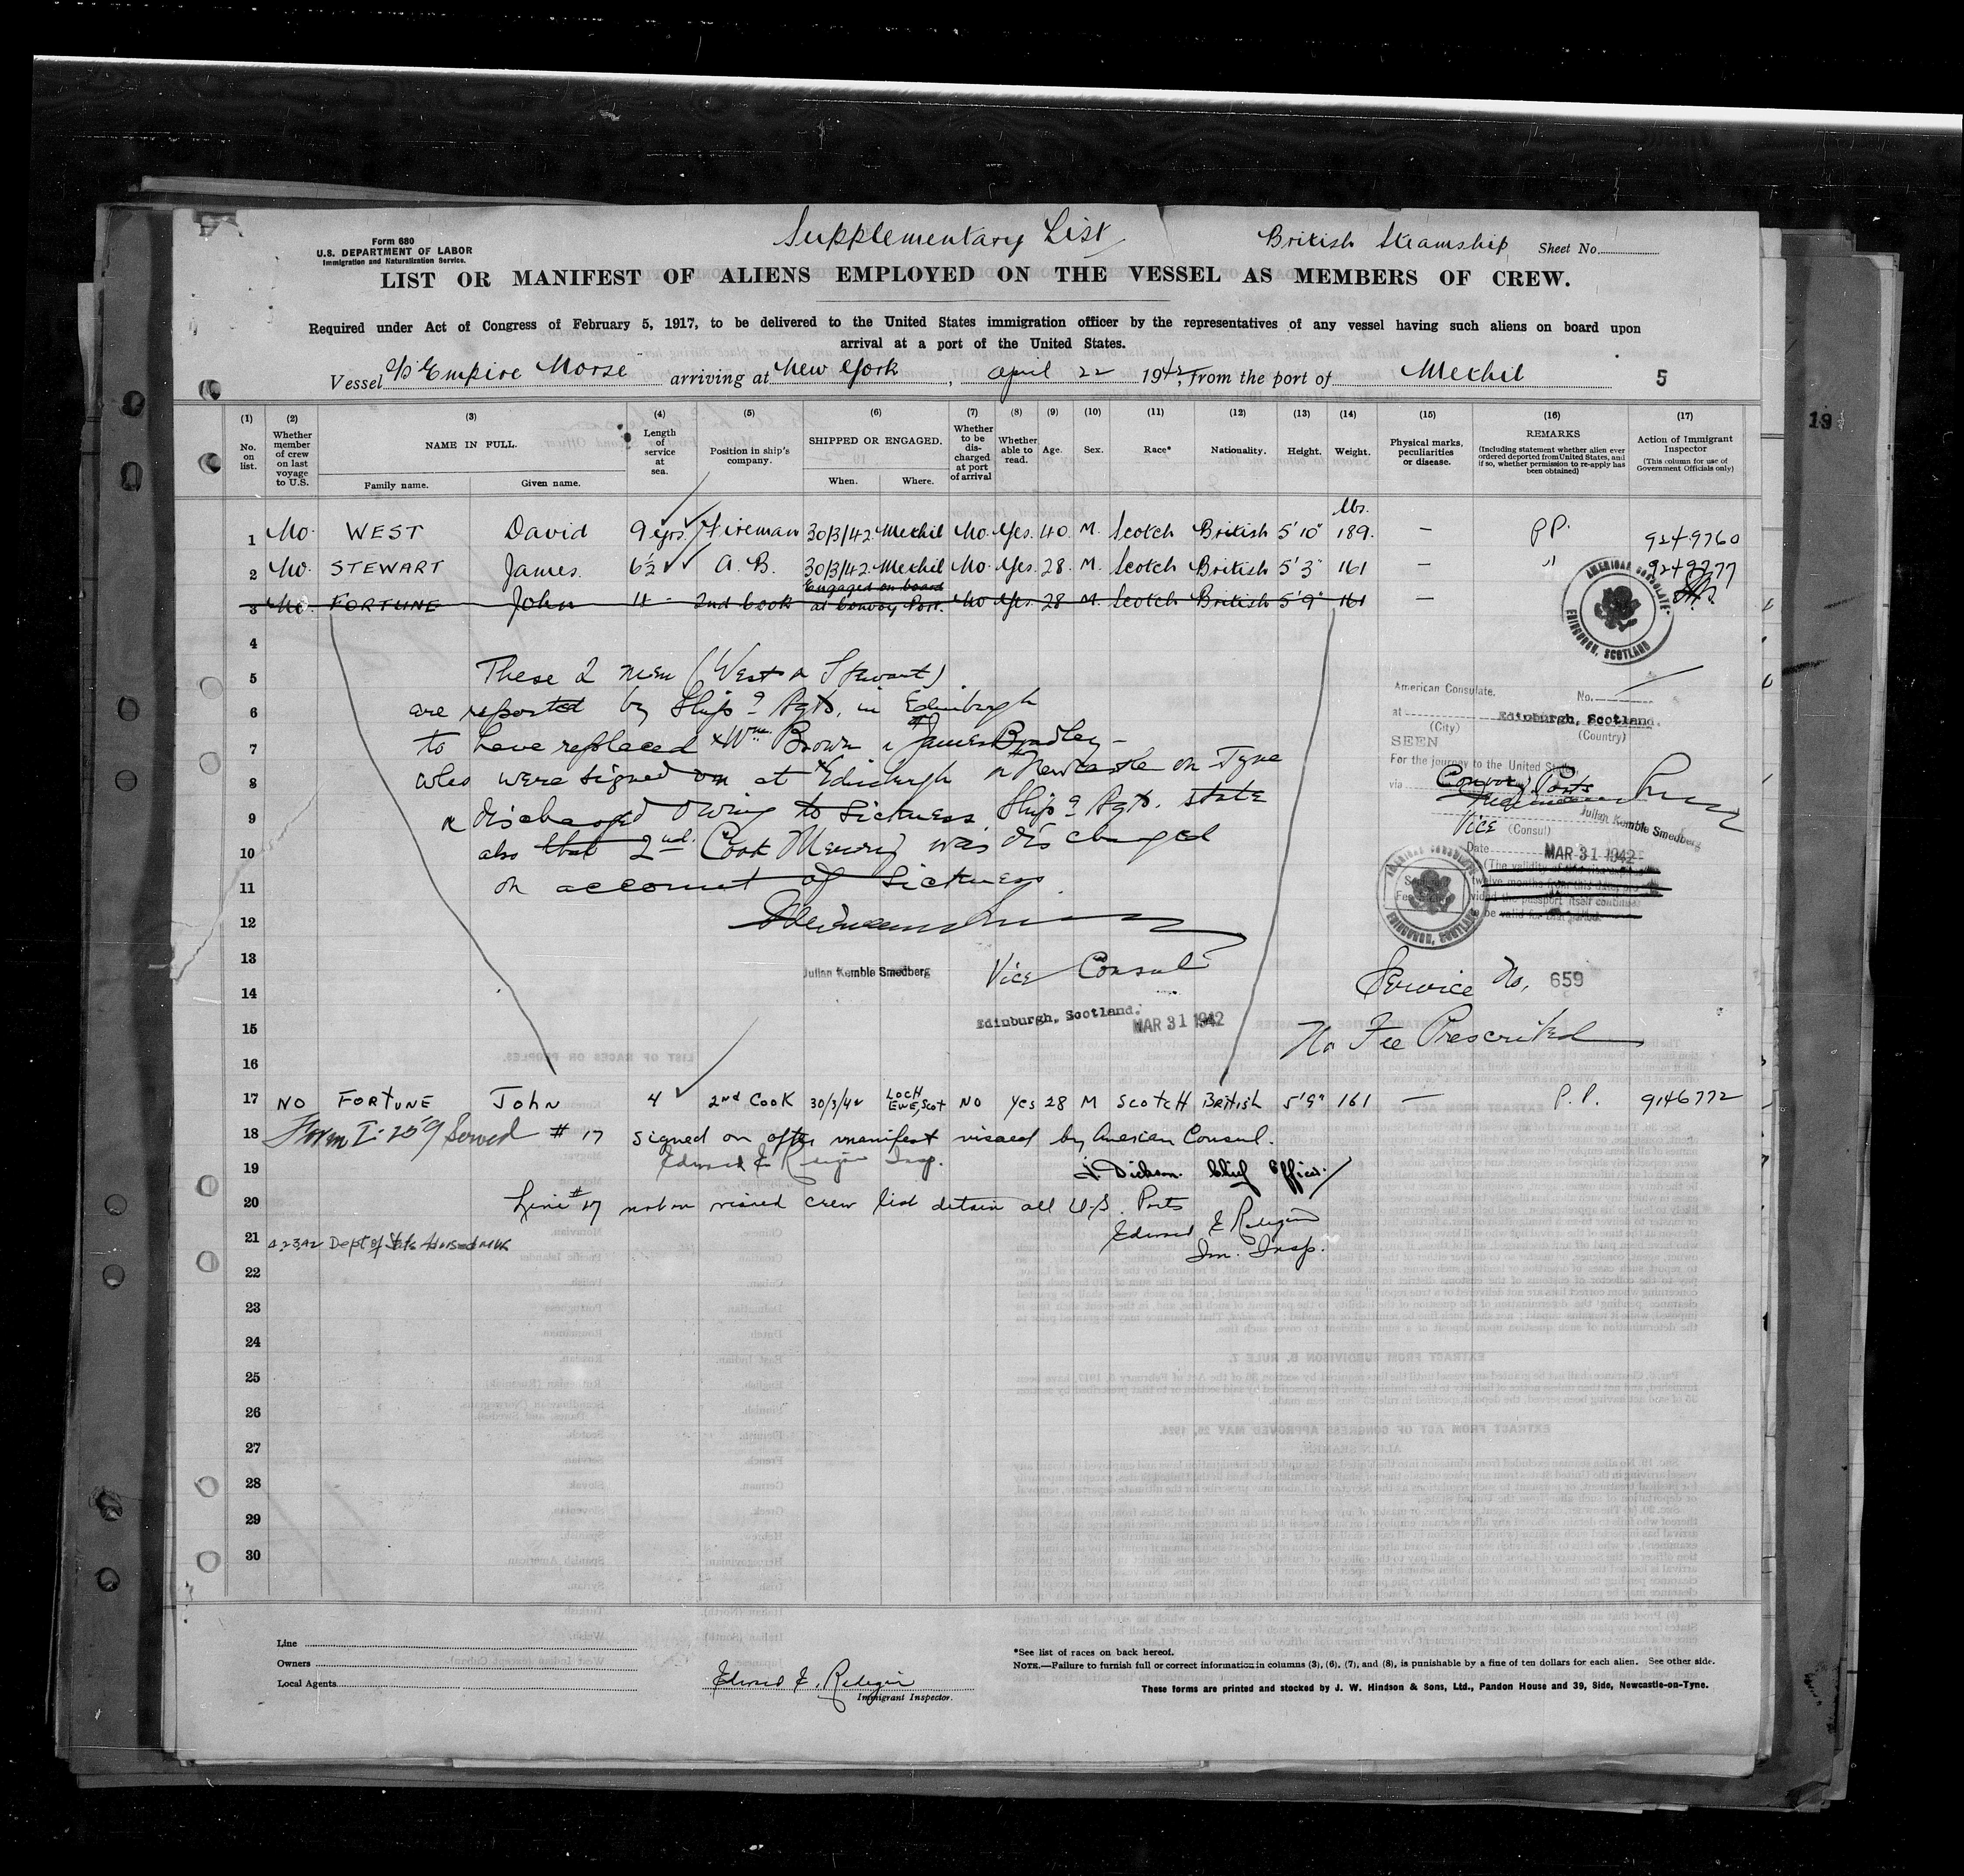 Supplementary List
British Steamship Sheet No.
Form 680
U.S. DEPARTMENT OF LABOR
Immigration and Naturalization Service.
LIST OR MANIFEST OF ALIENS EMPLOYED ON THE VESSEL AS MEMBERS OF CREW.
Required under Act of Congress of February 5, 1917, to be delivered to the United States immigration officer by the representatives of any vessel having such aliens on board upon
arrival at a port of the United States.
Vessel Empire Morse arriving at New York, April 22 1942, from the port of Methil 5
19
(1) (2) (3) (4) (5) (6) (7) (8) (9) (10) (11) (12) (13) (14) (15) (16) (17)
No. on list.
Whether member of crew on last voyage to U.S.
NAME IN FULL.
Family name. Given name.
Length of service at sea.
Position in ship's company.
SHIPPED OR ENGAGED.
When. Where.
Whether to be discharged at port of arrival
Whether able to read.
Age.
Sex.
Race*
Nationality.
Height.
Weight.
Physical marks, peculiarities or disease.
REMARKS
(Including statement whether alien ever ordered deported from United States, and if so, whether permission to re-apply has been obtained)
Action of Immigrant Inspector
(This column for use of Government Officials only)
lbs.
1 No. WEST David 9 yrs. Fireman 30/3/42 Methil No. Yes. 40. M. Scotch British 5'10" 189. — P.P. 9249760
2 No. STEWART James. 6½ A.B. 30/3/42 Methil No. Yes. 28. M. Scotch British 5'3" 161 — " 9249777
Engaged on board
3 No. FORTUNE John 4 2nd Cook at Convoy Port. No Yes 28 M. Scotch British 5'9" 161 —
AMERICAN CONSULATE
EDINBURGH, SCOTLAND
4
5 These 2 men (West & Stewart)
6 are reported by Ship's Agts. in Edinburgh
7 to have replaced Wm Brown & James Bradley —
8 who were signed on at Edinburgh & Newcastle on Tyne
9 & discharged owing to sickness Ship's Agts. state
10 also that 2nd Cook was discharged
11 on account of sickness.
12
13 Julian Kemble Smedberg Vice Consul
14
15 Edinburgh, Scotland. MAR 31 1942
16
American Consulate. No.
at Edinburgh, Scotland.
(City) (Country)
SEEN
For the journey to the United States,
via Convoy Ports
Julian Kemble Smedberg
Vice (Consul)
Date MAR 31 1942
(The validity of this visa
twelve months from this date, pro-
vided the passport itself continues
to be valid for that period.
AMERICAN CONSULATE
EDINBURGH, SCOTLAND
Service No. 659
No Fee Prescribed
17 NO FORTUNE John 4 2nd COOK 30/3/42 LOCH EWE, Scot NO Yes 28 M SCOTCH BRITISH 5'9" 161 — P.P. 9146772
18 Form I-259 Served #17 signed on after manifest visaed by American Consul.
19 Edward E. Redigin Insp. J. Dickson. Chief Officer.
20 Line #17 not on visaed crew list detain all U.S. Ports
Edward E Redigin
Im. Insp.
21 4.23.42 Dept of State Advised
22
23
24
25
26
27
28
29
30
Line
Owners
Local Agents
Edward E. Redigin
Immigrant Inspector.
*See list of races on back hereof.
NOTE.—Failure to furnish full or correct information in columns (3), (6), (7), and (8), is punishable by a fine of ten dollars for each alien. See other side.
These forms are printed and stocked by J. W. Hindson & Sons, Ltd., Pandon House and 39, Side, Newcastle-on-Tyne.